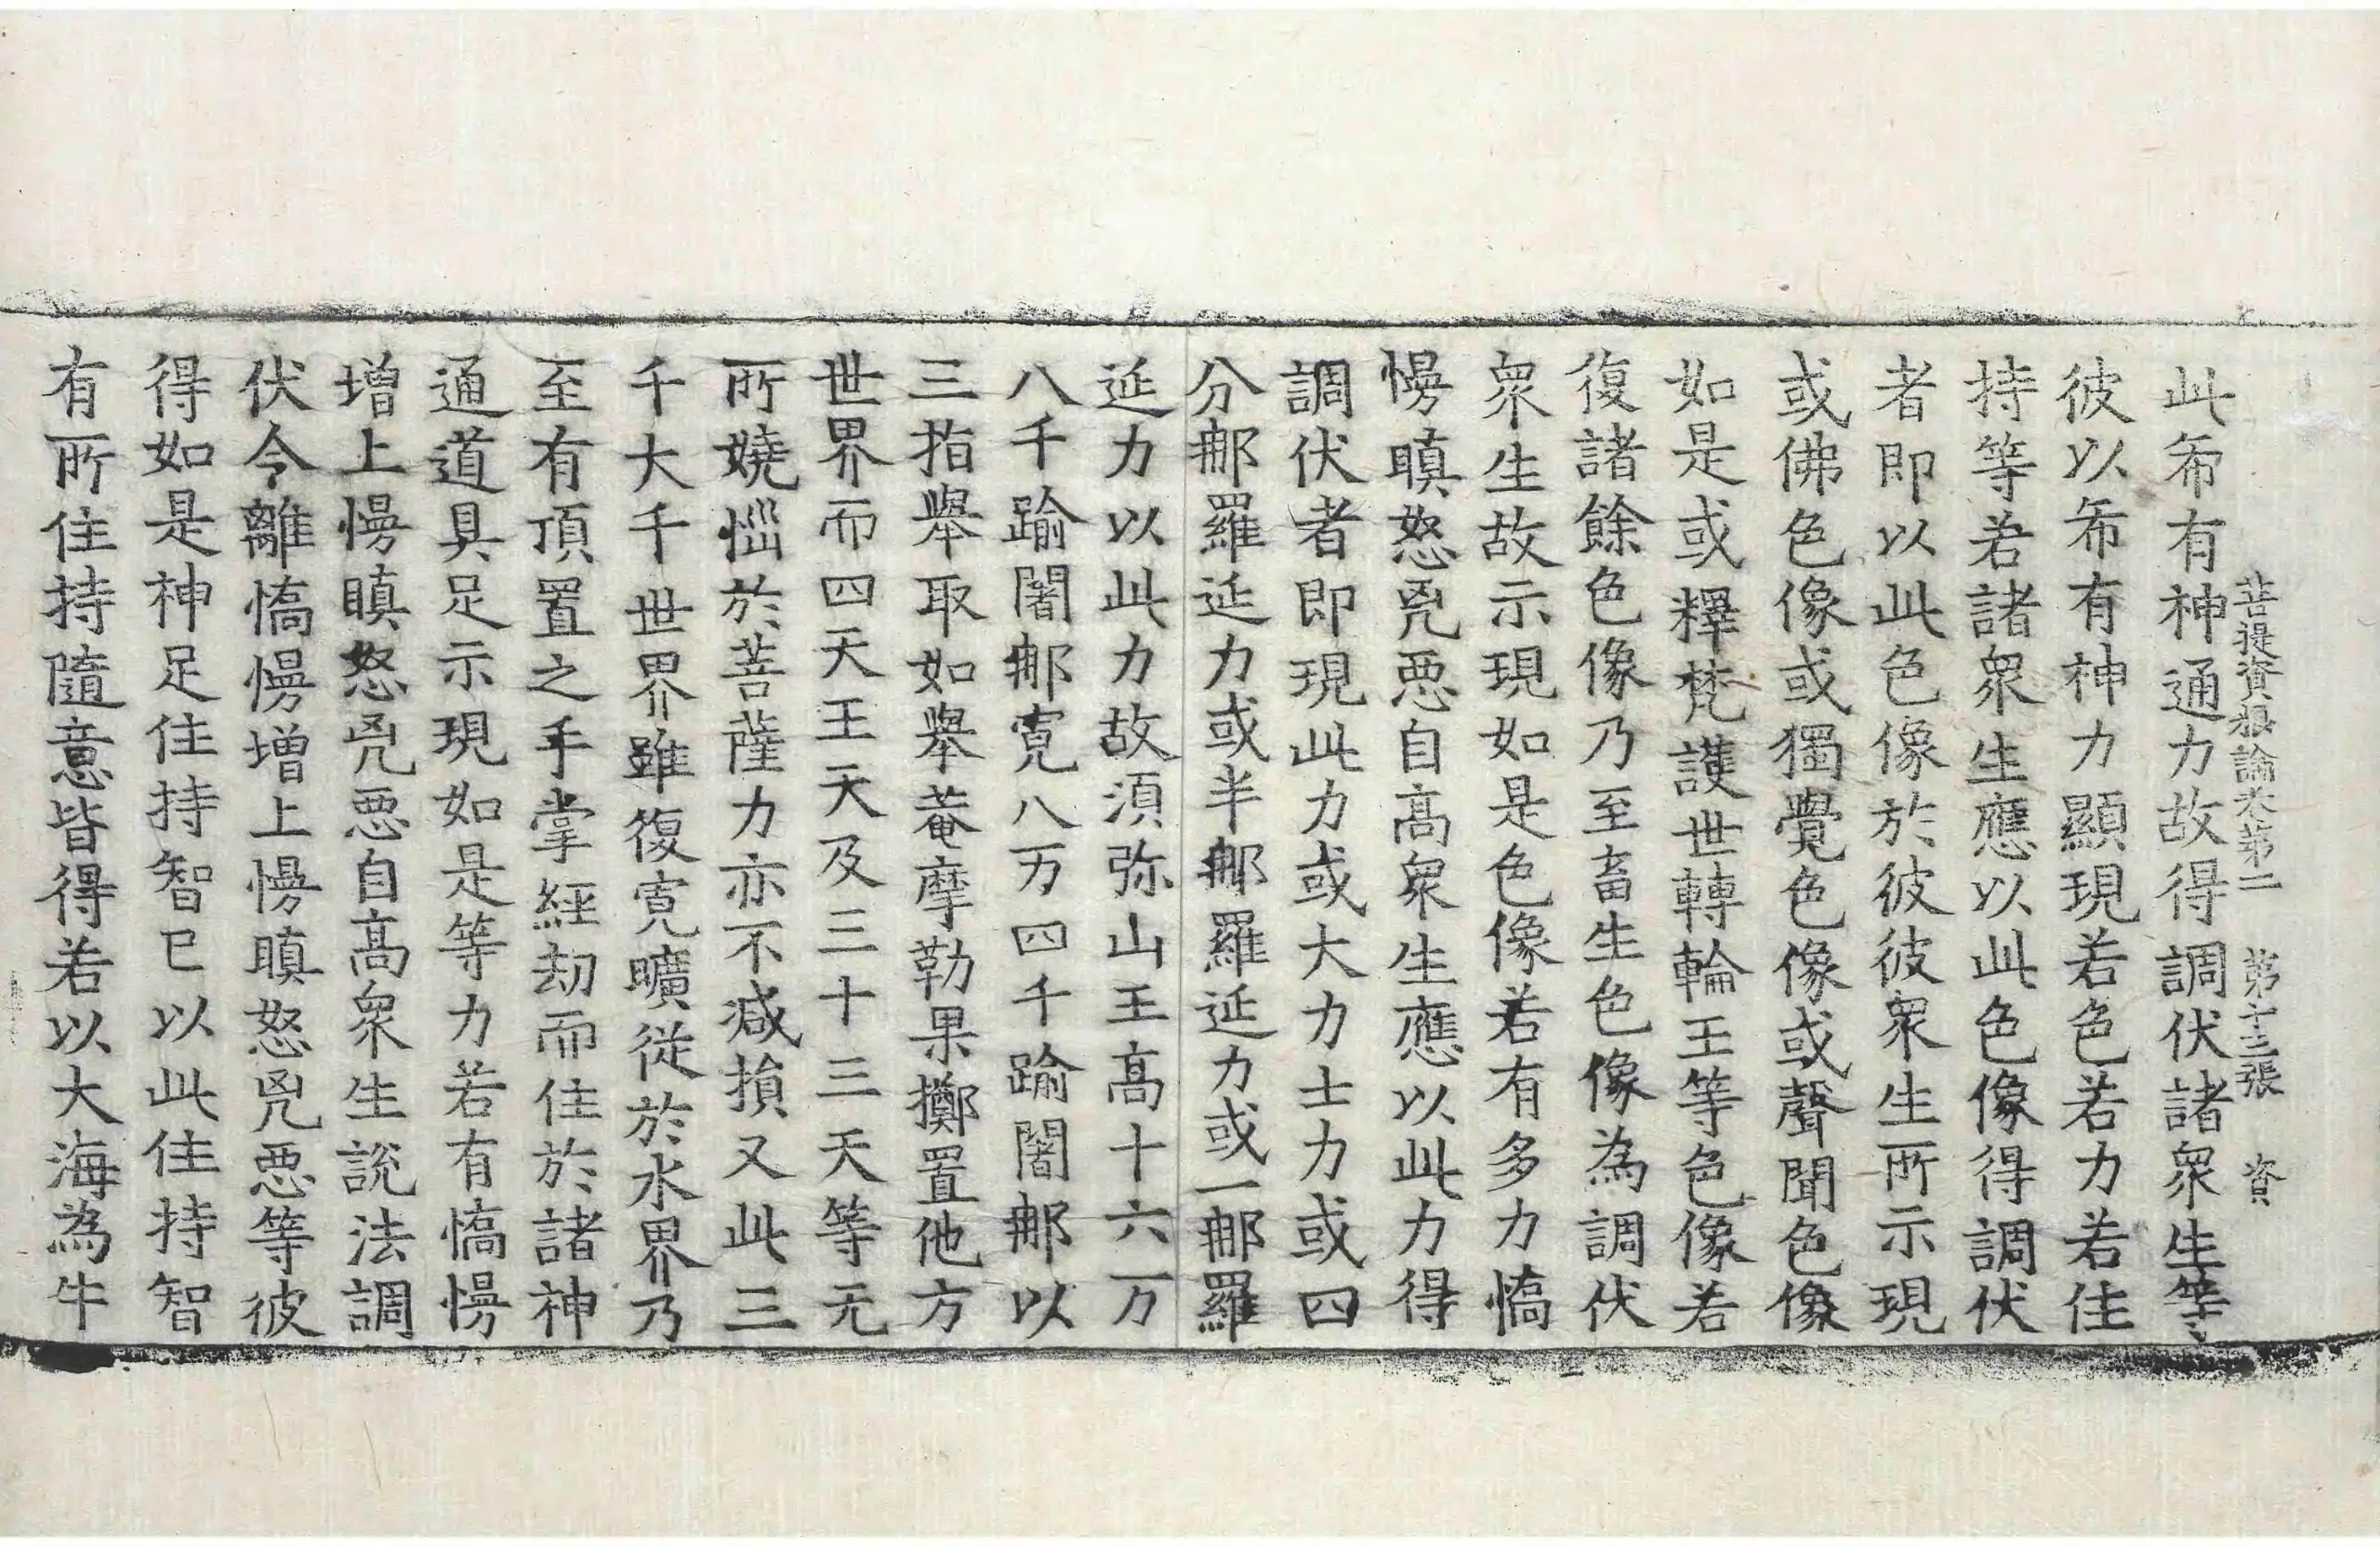 菩提資粮論卷第二　第十三張　資
此希有神通力故得調伏諸衆生等
彼以希有神力顯現若色若力若住
持等若諸衆生應以此色像得調伏
者即以此色像於彼彼衆生所示現
或佛色像或獨覺色像或聲聞色像
如是或釋梵護世轉輪王等色像若
復諸餘色像乃至畜生色像為調伏
衆生故示現如是色像若有多力憍
慢瞋怒兇惡自高衆生應以此力得
調伏者即現此力或大力士力或四
分那羅延力或半那羅延力或一那羅
延力以此力故須弥山王高十六万
八千踰闍那寬八万四千踰闍那以
三指舉取如舉菴摩勒果擲置他方
世界而四天王天及三十三天等无
所嬈惱於菩薩力亦不減損又此三
千大千世界雖復寬曠從於水界乃
至有頂置之手掌經劫而住於諸神
通道具足示現如是等力若有憍慢
增上慢瞋怒兇惡自高衆生說法調
伏令離憍慢增上慢瞋怒兇惡等彼
得如是神足住持智已以此住持智
有所住持隨意皆得若以大海為牛